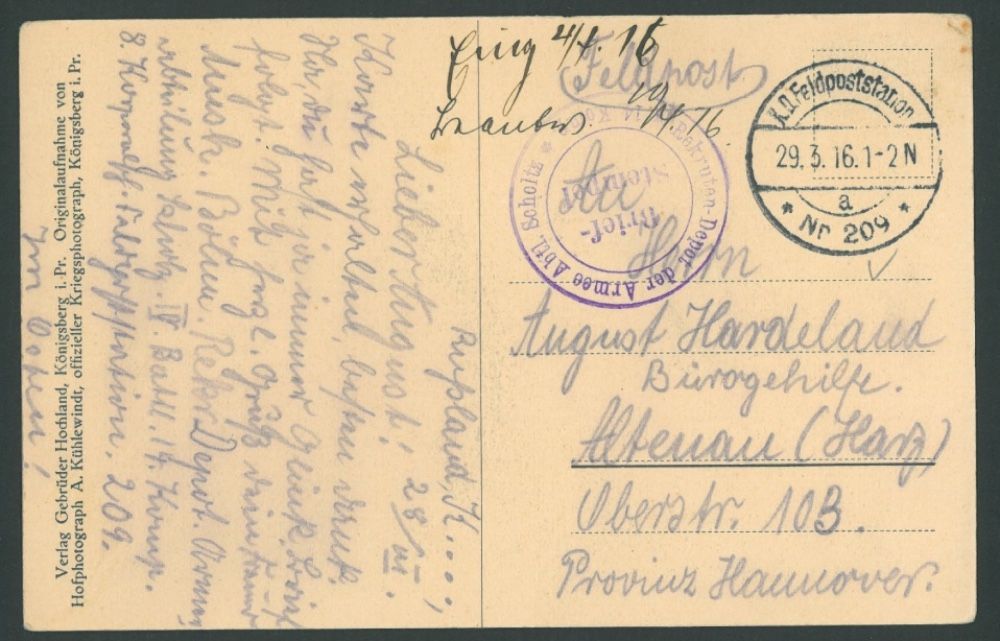 Eing 4/4. 16
Feldpost
Beantw. 19/4. 16
K.D. Feldpoststation
29.3.16.1-2N
a
* Nr 209 *
Rekruten-Depot der Armee Abtl. Scholtz *
Brief-
Stempel
An
Herrn
August Hardeland
Bürogehilfe.
Altenau (Harz)
Oberstr. 103.
Provinz Hannover.
Rußland, K....,
Lieber August! 28/III.
Karte erhalten besten Dank.
ja immer Glück. Brief
folgt. Mit frdl. Gruß dein Freund
Musk. Bölnen. Rekr. Depot. Armee
abteilung Scholtz. IV. Batl. 14. Komp.
Feldpoststation. 209.
Verlag Gebrüder Hochland, Königsberg i. Pr. Originalaufnahme von
Hofphotograph A. Kühlewindt, offizieller Kriegsphotograph, Königsberg i. Pr.